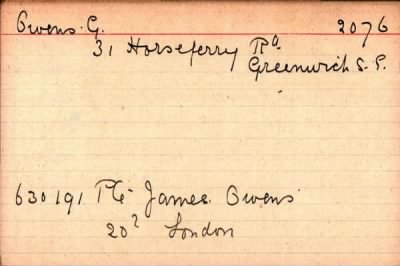 Owens. G. 2076
31 Horseferry Rd.
Greenwich S.E.
630191 Pte James Owens
20? London